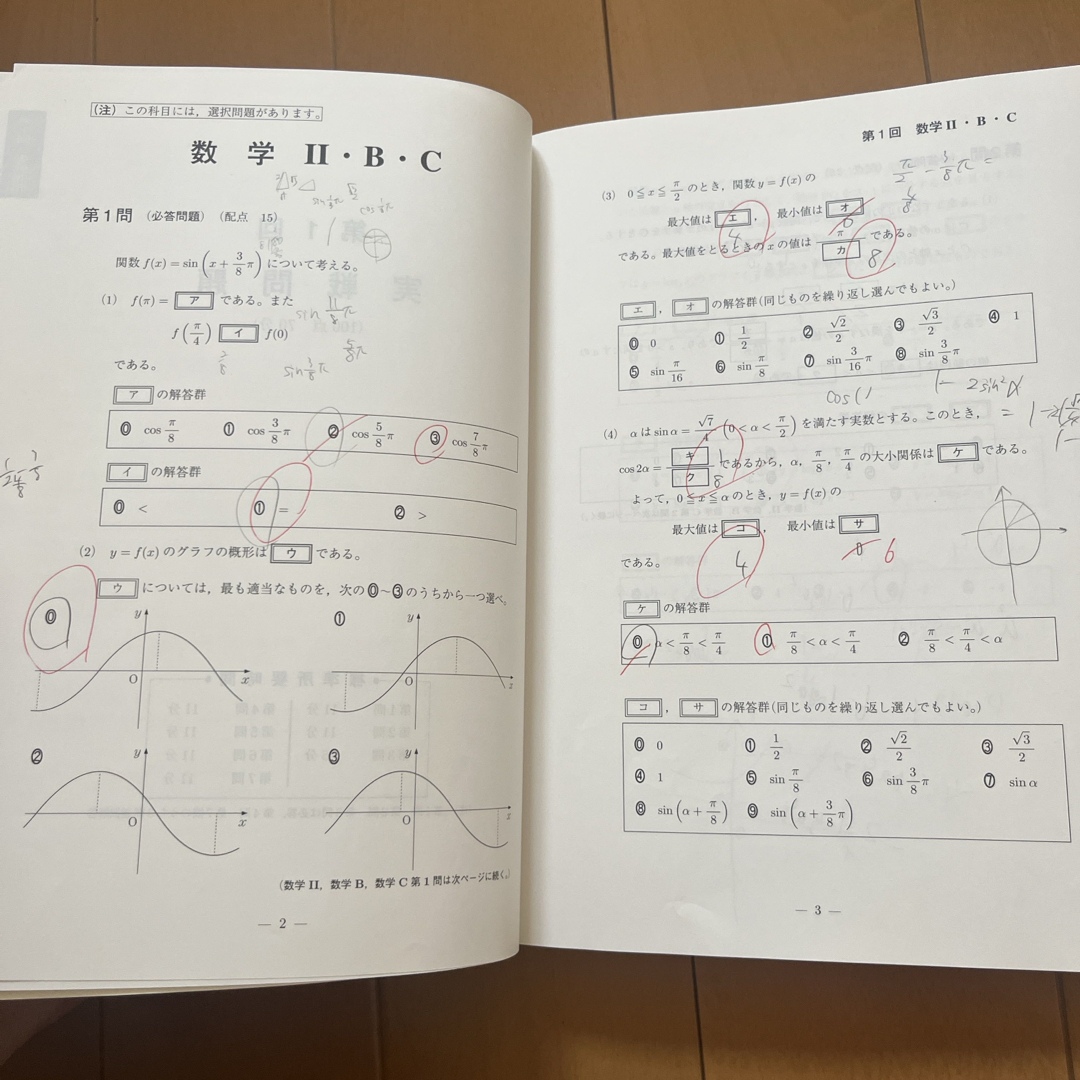 (注) この科目には,選択問題があります。
数学 II・B・C
第1問 (必答問題) (配点 15)
関数 f(x)=sin(x+3/8 π) について考える。
(1) f(π)= ア である。また
f(π/4) イ f(0)
である。
sin 11/8 π
5/8 π
sin 3/8 π
ア の解答群
⓪ cos π/8 ① cos 3/8 π ② cos 5/8 π ③ cos 7/8 π
イ の解答群
⓪ < ① = ② >
(2) y=f(x) のグラフの概形は ウ である。
ウ については,最も適当なものを,次の⓪~③のうちから一つ選べ。
⓪ y O x
① y O x
② y O x
③ y O x
(数学 II,数学 B,数学 C 第1問は次ページに続く。)
— 2 —
第1回 数学 II・B・C
π/2 − 3/8 π =
4/8
(3) 0≦x≦π/2 のとき,関数 y=f(x) の
最大値は エ , 最小値は オ
4 0
である。最大値をとるときの x の値は π/カ である。
8
エ , オ の解答群(同じものを繰り返し選んでもよい。)
⓪ 0 ① 1/2 ② √2/2 ③ √3/2 ④ 1
⑤ sin π/16 ⑥ sin π/8 ⑦ sin 3/16 π ⑧ sin 3/8 π
1− 2sin²α
(4) α は sin α = √7/4 (0<α<π/2) を満たす実数とする。このとき,
cos 2α = キ/ク であるから,α, π/8, π/4 の大小関係は ケ である。
1 8
よって,0≦x≦α のとき,y=f(x) の
最大値は コ , 最小値は サ
4 0 6
である。
ケ の解答群
⓪ α<π/8<π/4 ① π/8<α<π/4 ② π/8<π/4<α
コ , サ の解答群(同じものを繰り返し選んでもよい。)
⓪ 0 ① 1/2 ② √2/2 ③ √3/2
④ 1 ⑤ sin π/8 ⑥ sin 3/8 π ⑦ sin α
⑧ sin(α+π/8) ⑨ sin(α+3/8 π)
— 3 —